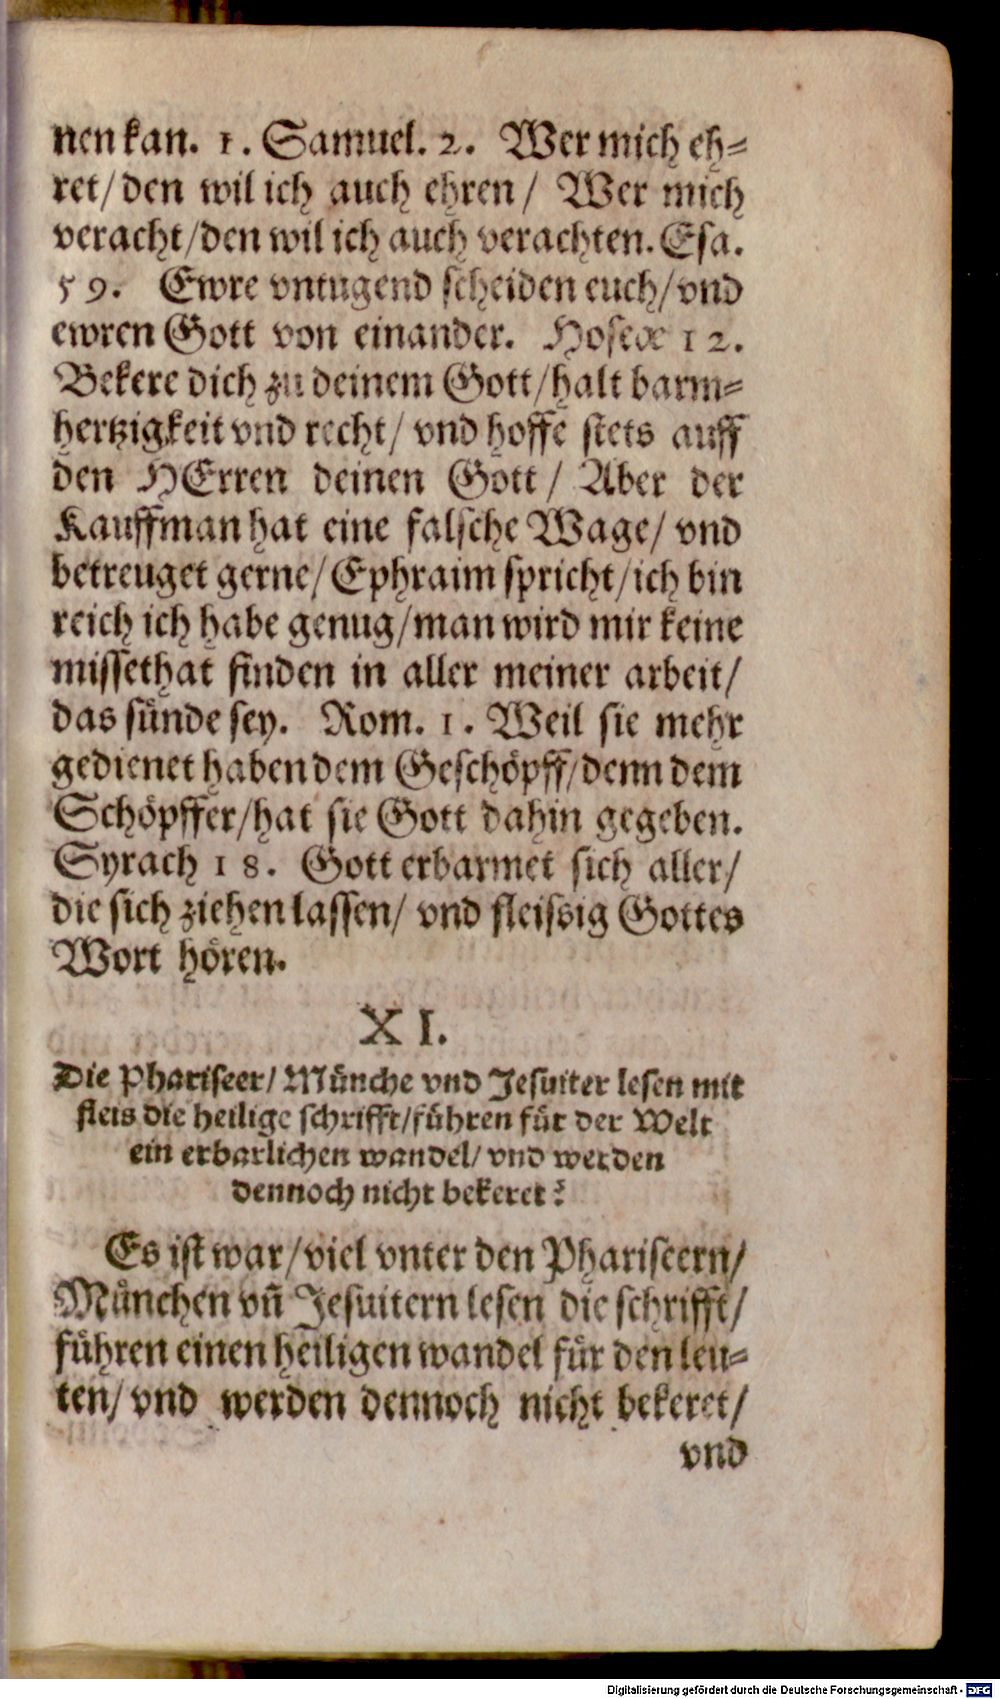 nen kan. 1. Samuel. 2. Wer mich eh-
ret/ den wil ich auch ehren/ Wer mich
veracht/ den wil ich auch verachten. Esa.
59. Ewre vntugend scheiden euch/ vnd
ewren Gott von einander. Hoseæ 12.
Bekere dich zu deinem Gott/ halt barm-
hertzigkeit vnd recht/ vnd hoffe stets auff
den HErren deinen Gott/ Aber der
Kauffman hat eine falsche Wage/ vnd
betreuget gerne/ Ephraim spricht/ ich bin
reich ich habe genug/ man wird mir keine
missethat finden in aller meiner arbeit/
das sünde sey. Rom. 1. Weil sie mehr
gedienet haben dem Geschöpff/ denn dem
Schöpffer/ hat sie Gott dahin gegeben.
Syrach 18. Gott erbarmet sich aller/
die sich ziehen lassen/ vnd fleissig Gottes
Wort hören.
XI.
Die Phariseer/ Münche vnd Jesuiter lesen mit
fleis die heilige schrifft/ führen für der Welt
ein erbarlichen wandel/ vnd werden
dennoch nicht bekeret?
Es ist war/ viel vnter den Phariseern/
München vñ Jesuitern lesen die schrifft/
führen einen heiligen wandel für den leu-
ten/ vnd werden dennoch nicht bekeret/
vnd
Digitalisierung gefördert durch die Deutsche Forschungsgemeinschaft - DFG